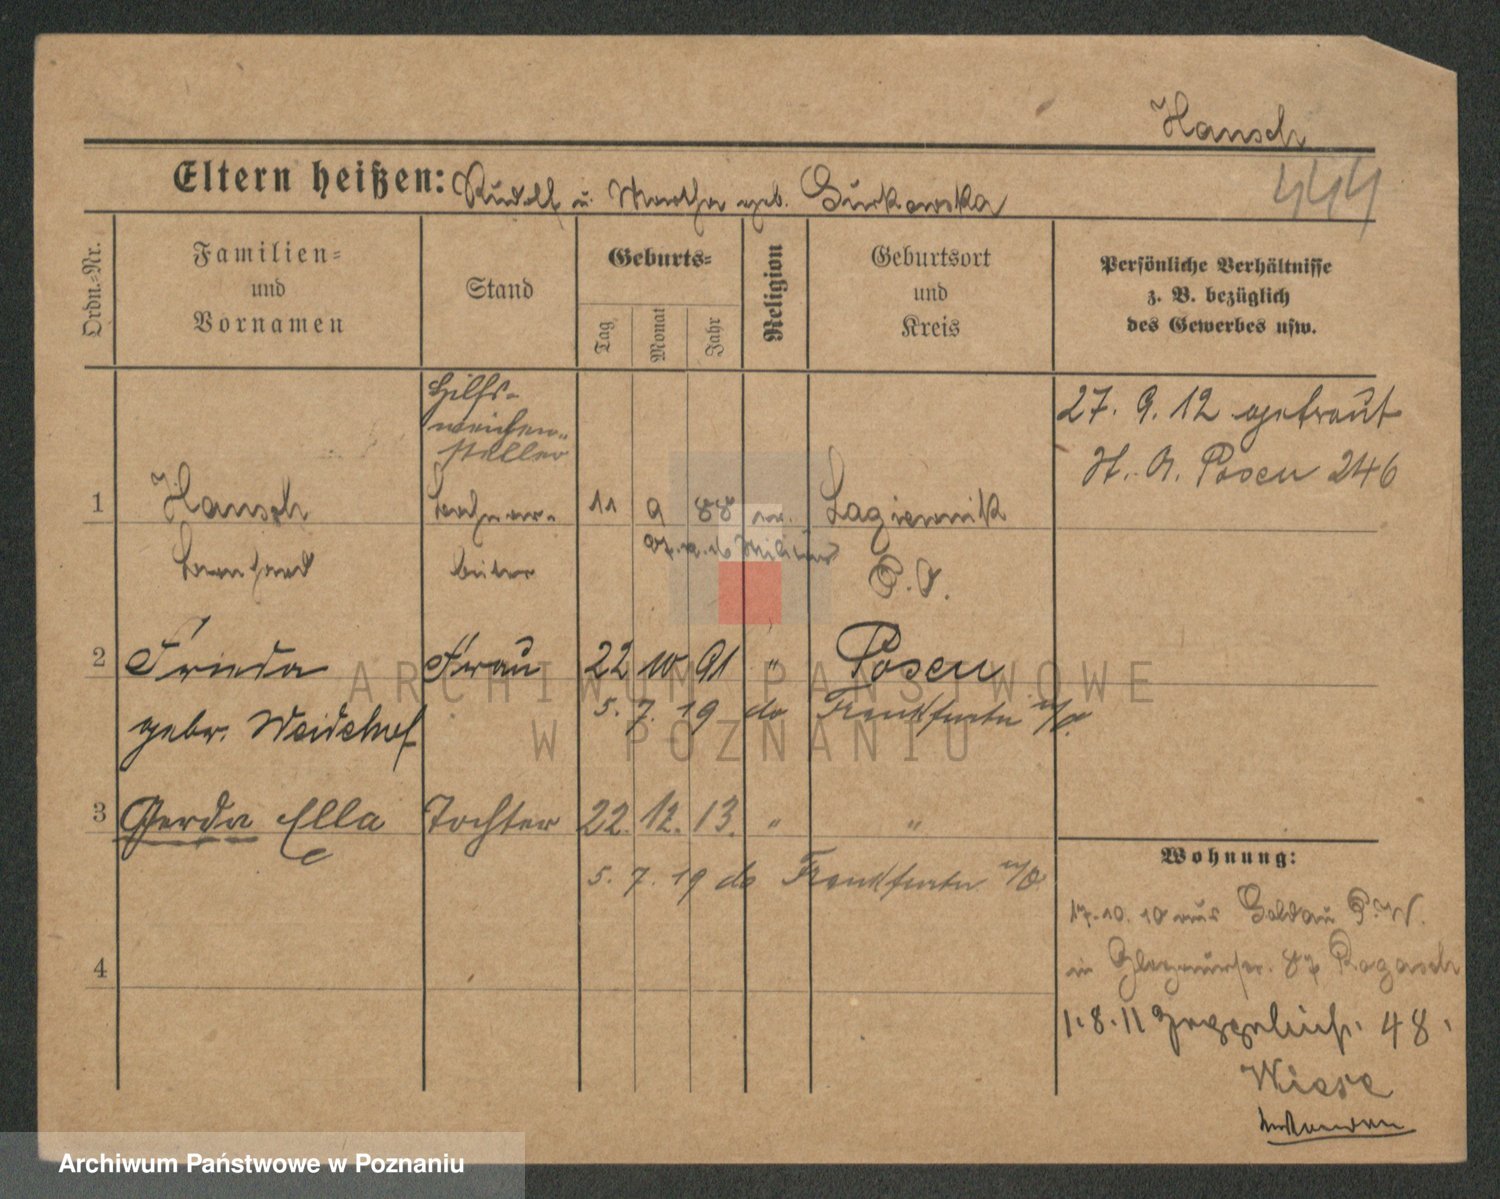 Hansch
444
Eltern heißen: Rudolf u. Martha geb. Gurkowska
Ordn.-Nr.
Familien-
und
Vornamen
Stand
Geburts-
Tag
Monat
Jahr
Religion
Geburtsort
und
Kreis
Persönliche Verhältnisse
z. B. bezüglich
des Gewerbes usw.
Hilfs-
weichen-
steller
27. 9. 12 getraut
St. A. Posen 246
1 Hansch 11 9 88 Lagiewnik
Bernhard beiter P. O.
2 Frieda Frau 22 10 91 " Posen
gebr. 5. 7. 19 do Frankfurt a/O.
3 Gerda Ella Tochter 22. 12. 13. " "
5. 7. 19 do Frankfurt a/O
4
Wohnung:
17.10.10 aus Soldau P.W.
in Glogauerstr. 87 Rogasch
1.8.11 48.
Wiese
ARCHIWUM PAŃSTWOWE
W POZNANIU
Archiwum Państwowe w Poznaniu